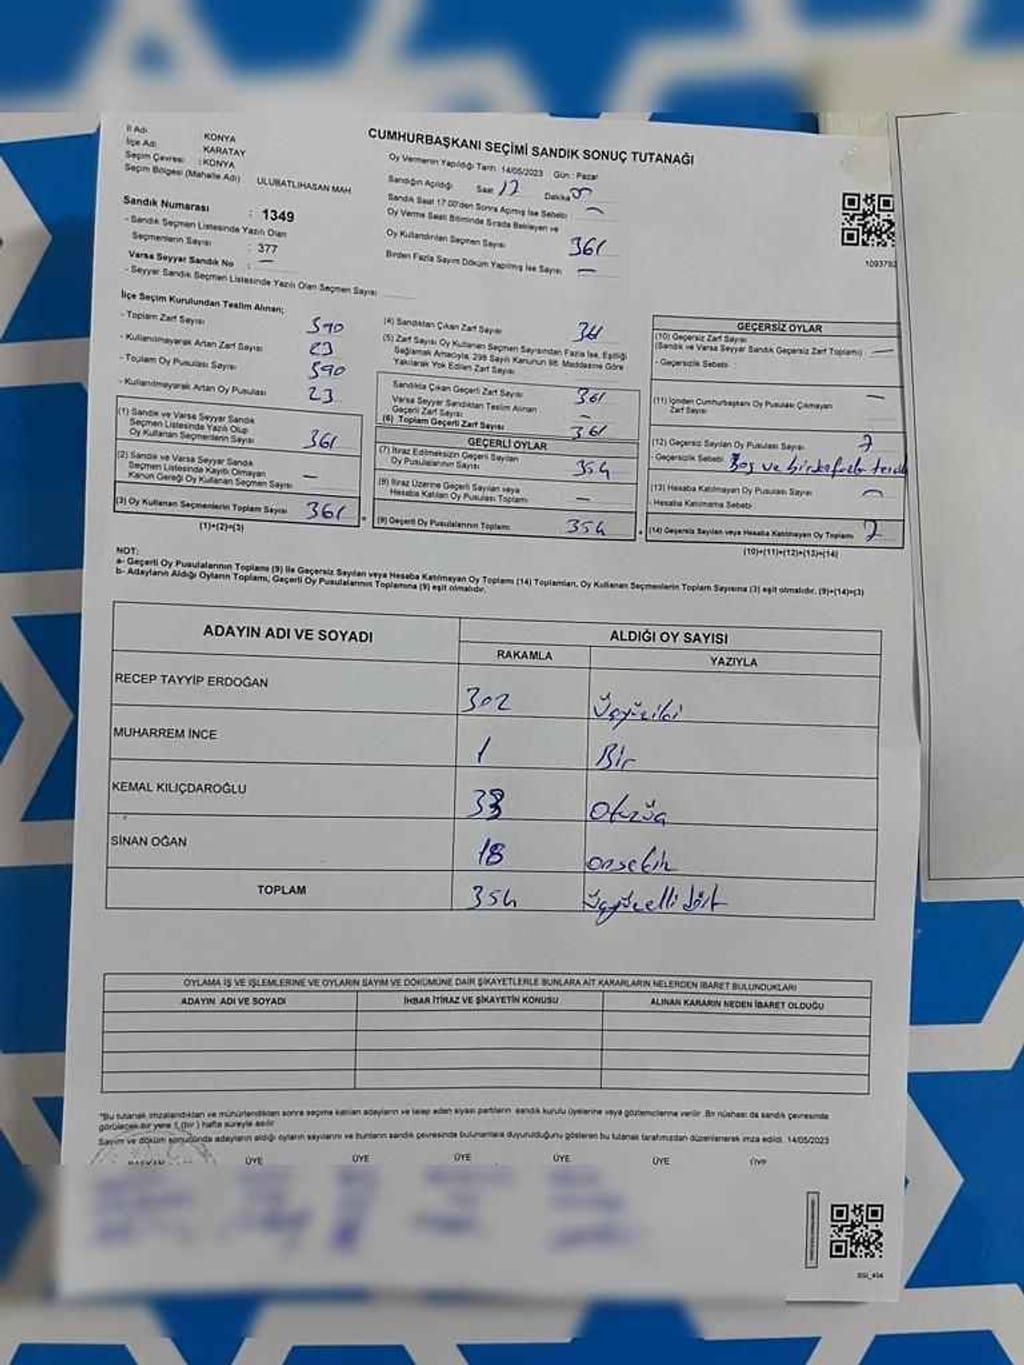 CUMHURBAŞKANI SEÇİMİ SANDIK SONUÇ TUTANAĞI
İl Adı KONYA
İlçe Adı KARATAY
Seçim Çevresi : KONYA
Seçim Bölgesi (Mahalle Adı) ULUBATLIHASAN MAH
Sandık Numarası : 1349
- Sandık Seçmen Listesinde Yazılı Olan
Seçmenlerin Sayısı : 377
Varsa Seyyar Sandık No : —
- Seyyar Sandık Seçmen Listesinde Yazılı Olan Seçmen Sayısı
Oy Vermenin Yapıldığı Tarih 14/05/2023 Gün : Pazar
Sandığın Açıldığı Saat 17 Dakika
Sandık Saat 17:00'den Sonra Açılmış İse Sebebi : —
Oy Verme Saati Bitiminde Sırada Bekleyen ve
Oy Kullandırılan Seçmen Sayısı 361
Birden Fazla Sayım Döküm Yapılmış İse Sayısı —
1093792
İlçe Seçim Kurulundan Teslim Alınan;
- Toplam Zarf Sayısı 390
- Kullanılmayarak Artan Zarf Sayısı 23
- Toplam Oy Pusulası Sayısı 390
- Kullanılmayarak Artan Oy Pusulası 23
(1) Sandık ve Varsa Seyyar Sandık
Seçmen Listesinde Yazılı Olup
Oy Kullanan Seçmenlerin Sayısı 361
(2) Sandık ve Varsa Seyyar Sandık
Seçmen Listesinde Kayıtlı Olmayan
Kanun Gereği Oy Kullanan Seçmen Sayısı —
(3) Oy Kullanan Seçmenlerin Toplam Sayısı 361
(1)+(2)=(3)
(4) Sandıktan Çıkan Zarf Sayısı 361
(5) Zarf Sayısı Oy Kullanan Seçmen Sayısından Fazla İse, Eşitliği
Sağlamak Amacıyla, 298 Sayılı Kanunun 98. Maddesine Göre
Yakılarak Yok Edilen Zarf Sayısı
Sandıkta Çıkan Geçerli Zarf Sayısı 361
Varsa Seyyar Sandıktan Teslim Alınan
Geçerli Zarf Sayısı —
(6) Toplam Geçerli Zarf Sayısı 361
GEÇERLİ OYLAR
(7) İtiraz Edilmeksizin Geçerli Sayılan
Oy Pusulalarının Sayısı 354
(8) İtiraz Üzerine Geçerli Sayılan veya
Hesaba Katılan Oy Pusulası Toplamı —
(9) Geçerli Oy Pusulalarının Toplamı 354
GEÇERSİZ OYLAR
(10) Geçersiz Zarf Sayısı
(Sandık ve Varsa Seyyar Sandık Geçersiz Zarf Toplamı) : —
- Geçersizlik Sebebi :
(11) İçinden Cumhurbaşkanı Oy Pusulası Çıkmayan
Zarf Sayısı —
(12) Geçersiz Sayılan Oy Pusulası Sayısı 7
- Geçersizlik Sebebi Boş ve birden fazla
(13) Hesaba Katılmayan Oy Pusulası Sayısı —
- Hesaba Katılmama Sebebi
(14) Geçersiz Sayılan veya Hesaba Katılmayan Oy Toplamı 7
(10)+(11)+(12)+(13)=(14)
NOT:
a- Geçerli Oy Pusulalarının Toplamı (9) ile Geçersiz Sayılan veya Hesaba Katılmayan Oy Toplamı (14) Toplamları, Oy Kullanan Seçmenlerin Toplam Sayısına (3) eşit olmalıdır. (9)+(14)=(3)
b- Adayların Aldığı Oyların Toplamı, Geçerli Oy Pusulalarının Toplamına (9) eşit olmalıdır.
ADAYIN ADI VE SOYADI ALDIĞI OY SAYISI
RAKAMLA YAZIYLA
RECEP TAYYİP ERDOĞAN 302 Üçyüziki
MUHARREM İNCE 1 Bir
KEMAL KILIÇDAROĞLU 33 Otuzüç
SİNAN OĞAN 18 onsekiz
TOPLAM 354 Üçyüzellidört
OYLAMA İŞ VE İŞLEMLERİNE VE OYLARIN SAYIM VE DÖKÜMÜNE DAİR ŞİKAYETLERLE BUNLARA AİT KARARLARIN NELERDEN İBARET BULUNDUKLARI
ADAYIN ADI VE SOYADI İHBAR İTİRAZ VE ŞİKAYETİN KONUSU ALINAN KARARIN NEDEN İBARET OLDUĞU
"Bu tutanak imzalandıktan ve mühürlendikten sonra seçime katılan adayların ve talep eden siyasi partilerin sandık kurulu üyelerine veya gözlemcilerine verilir. Bir nüshası da sandık çevresinde
görülecek bir yere 1 (bir ) hafta süreyle asılır.
Sayım ve döküm sonucunda adayların aldığı oyların sayılarını ve bunların sandık çevresinde bulunanlara duyurulduğunu gösteren bu tutanak tarafımızdan düzenlenerek imza edildi. 14/05/2023
BAŞKAN ÜYE ÜYE ÜYE ÜYE ÜYE ÜYE